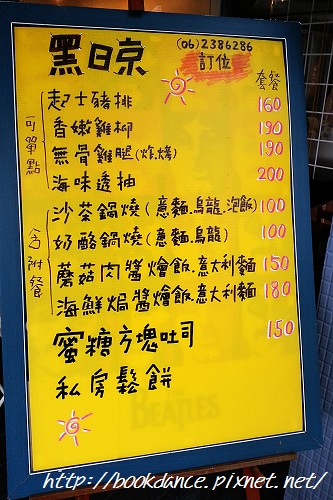 黑日京
(06)2386286
訂位
套餐
可單點
起士豬排 160
香嫩雞柳 190
無骨雞腿(炸.烤) 190
海味透抽 200
含附餐
沙茶鍋燒(意麵.烏龍.泡飯) 100
奶酪鍋燒(意麵.烏龍) 100
蘑菇肉醬燴飯.意大利麵 150
海鮮焗醬燴飯.意大利麵 180
蜜糖方塊吐司 150
私房鬆餅
BEATLES
http://bookdance.pixnet.net/